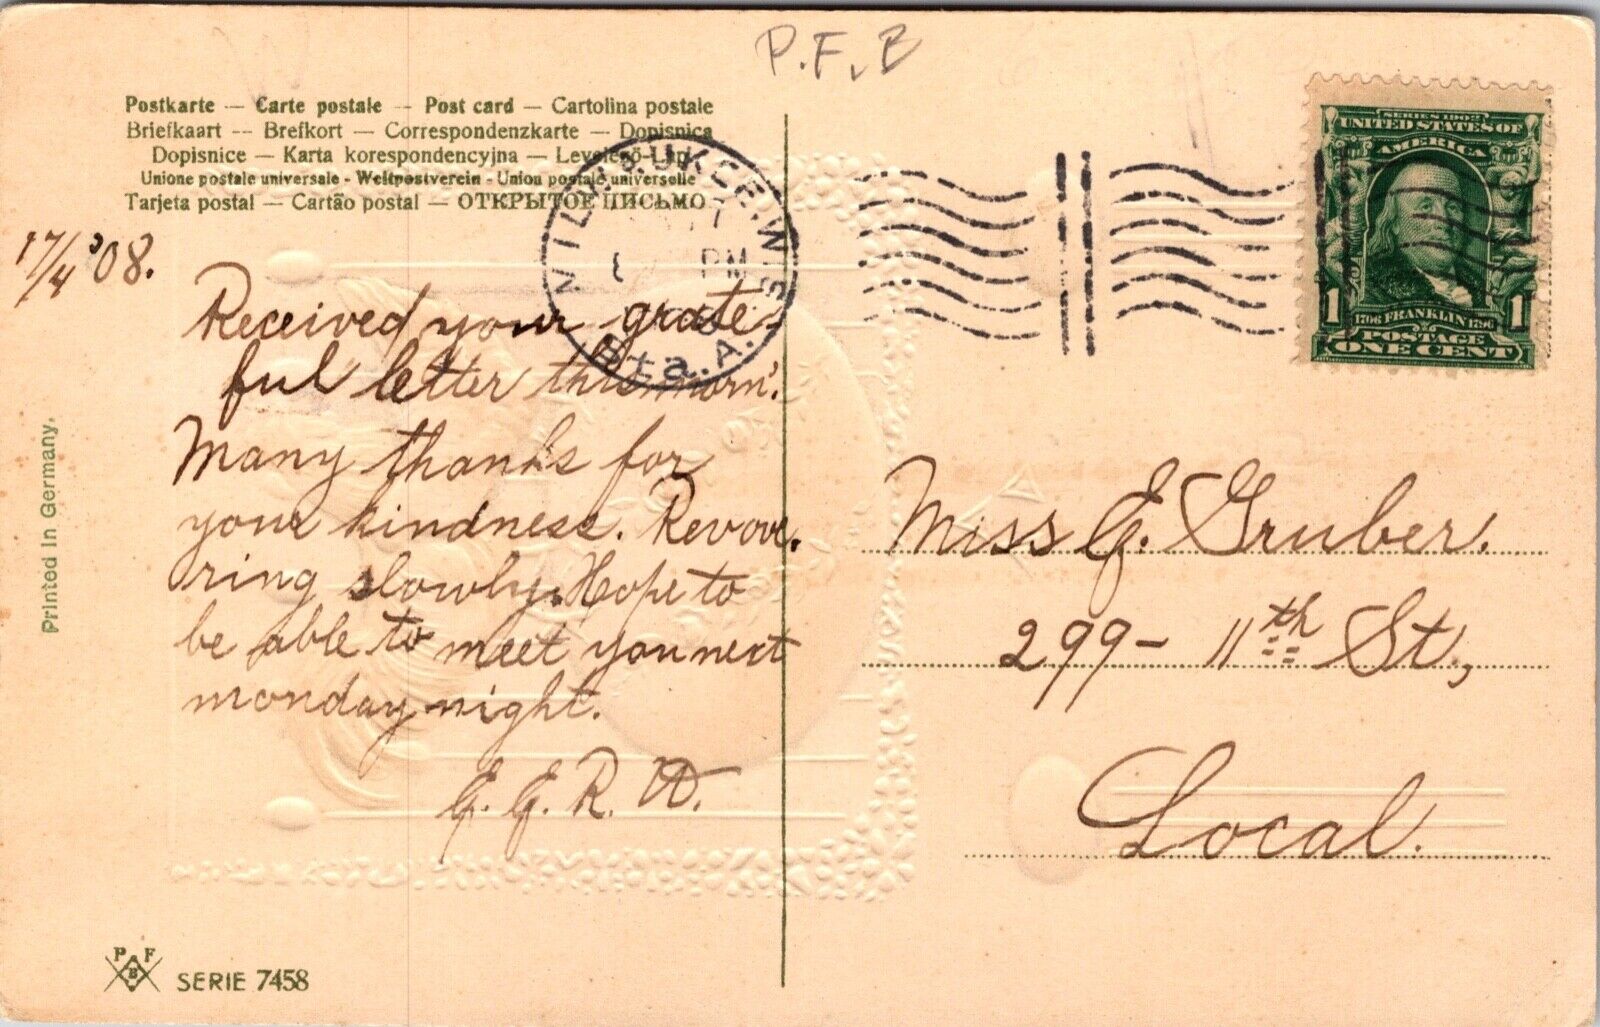 P.F.B
Postkarte — Carte postale — Post card — Cartolina postale
Briefkaart -- Brefkort — Correspondenzkarte — Dopisnica
Dopisnice — Karta korespondencyjna — Levelező-Lap
Unione postale universale - Weltpostverein - Union postale universelle
Tarjeta postal — Cartão postal — ОТКРЫТОЕ ПИСЬМО
MILWAUKEE, WIS.
PM
Sta. A.
SERIES 1902
UNITED STATES OF
AMERICA
1 1
1706 FRANKLIN 1790
POSTAGE
ONE CENT
17/4 '08.
Received your grate-
ful letter this morn'.
Many thanks for
your kindness. Revove.
ring slowly. Hope to
be able to meet you next
monday night.
E. E. R. W.
Miss E. Gruber.
299- 11th St.,
Local.
Printed in Germany.
P F
B
SERIE 7458